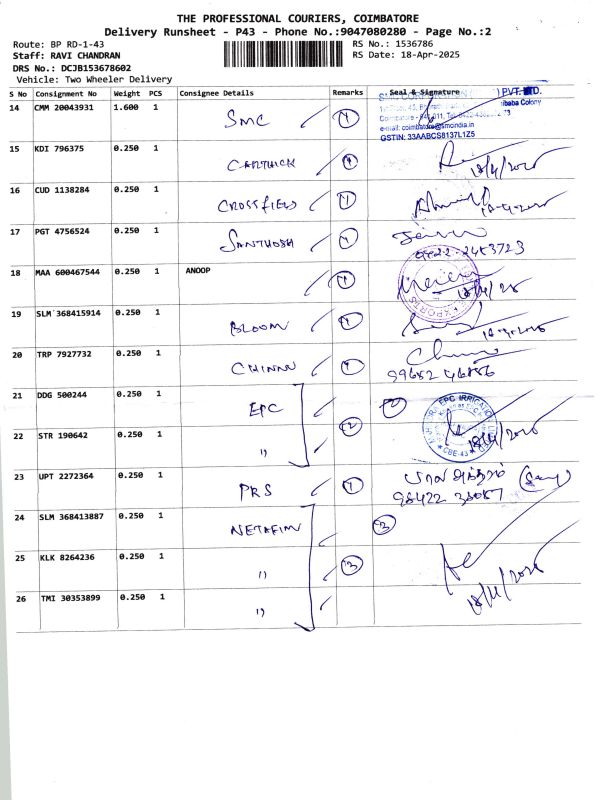 THE PROFESSIONAL COURIERS, COIMBATORE
Delivery Runsheet - P43 - Phone No.:9047080280 - Page No.:2
Route: BP RD-1-43 RS No.: 1536786
Staff: RAVI CHANDRAN RS Date: 18-Apr-2025
DRS No.: DCJB153678602
Vehicle: Two Wheeler Delivery
S No Consignment No Weight PCS Consignee Details Remarks Seal & Signature
14 CMM 20043931 1.600 1 SMC 1 PVT. LTD.
ibaba Colony
e-mail: coimbatore@smcindia.in
GSTIN: 33AABCS8137L1Z5
15 KDI 796375 0.250 1 CARTHICK 1 18/4/2025
16 CUD 1138284 0.250 1 CROSSFIELD 1 18-4-2025
17 PGT 4756524 0.250 1 SANTHOSH 1
0422-2453723
18 MAA 600467544 0.250 1 ANOOP 1 18/4/25
EXPORTS
19 SLM 368415914 0.250 1 BLOOM 1 18-4-2025
20 TRP 7927732 0.250 1 CHINNU 1
99652 46856
21 DDG 500244 0.250 1 EPC 2 EPC IRRIGATION
22 STR 190642 0.250 1 " 2 18/4/2025
CBE-43
23 UPT 2272364 0.250 1 PRS 1
98422 38087
24 SLM 368413887 0.250 1 NETAFIM 3
25 KLK 8264236 0.250 1 " 3
26 TMI 30353899 0.250 1 " 18/4/2025